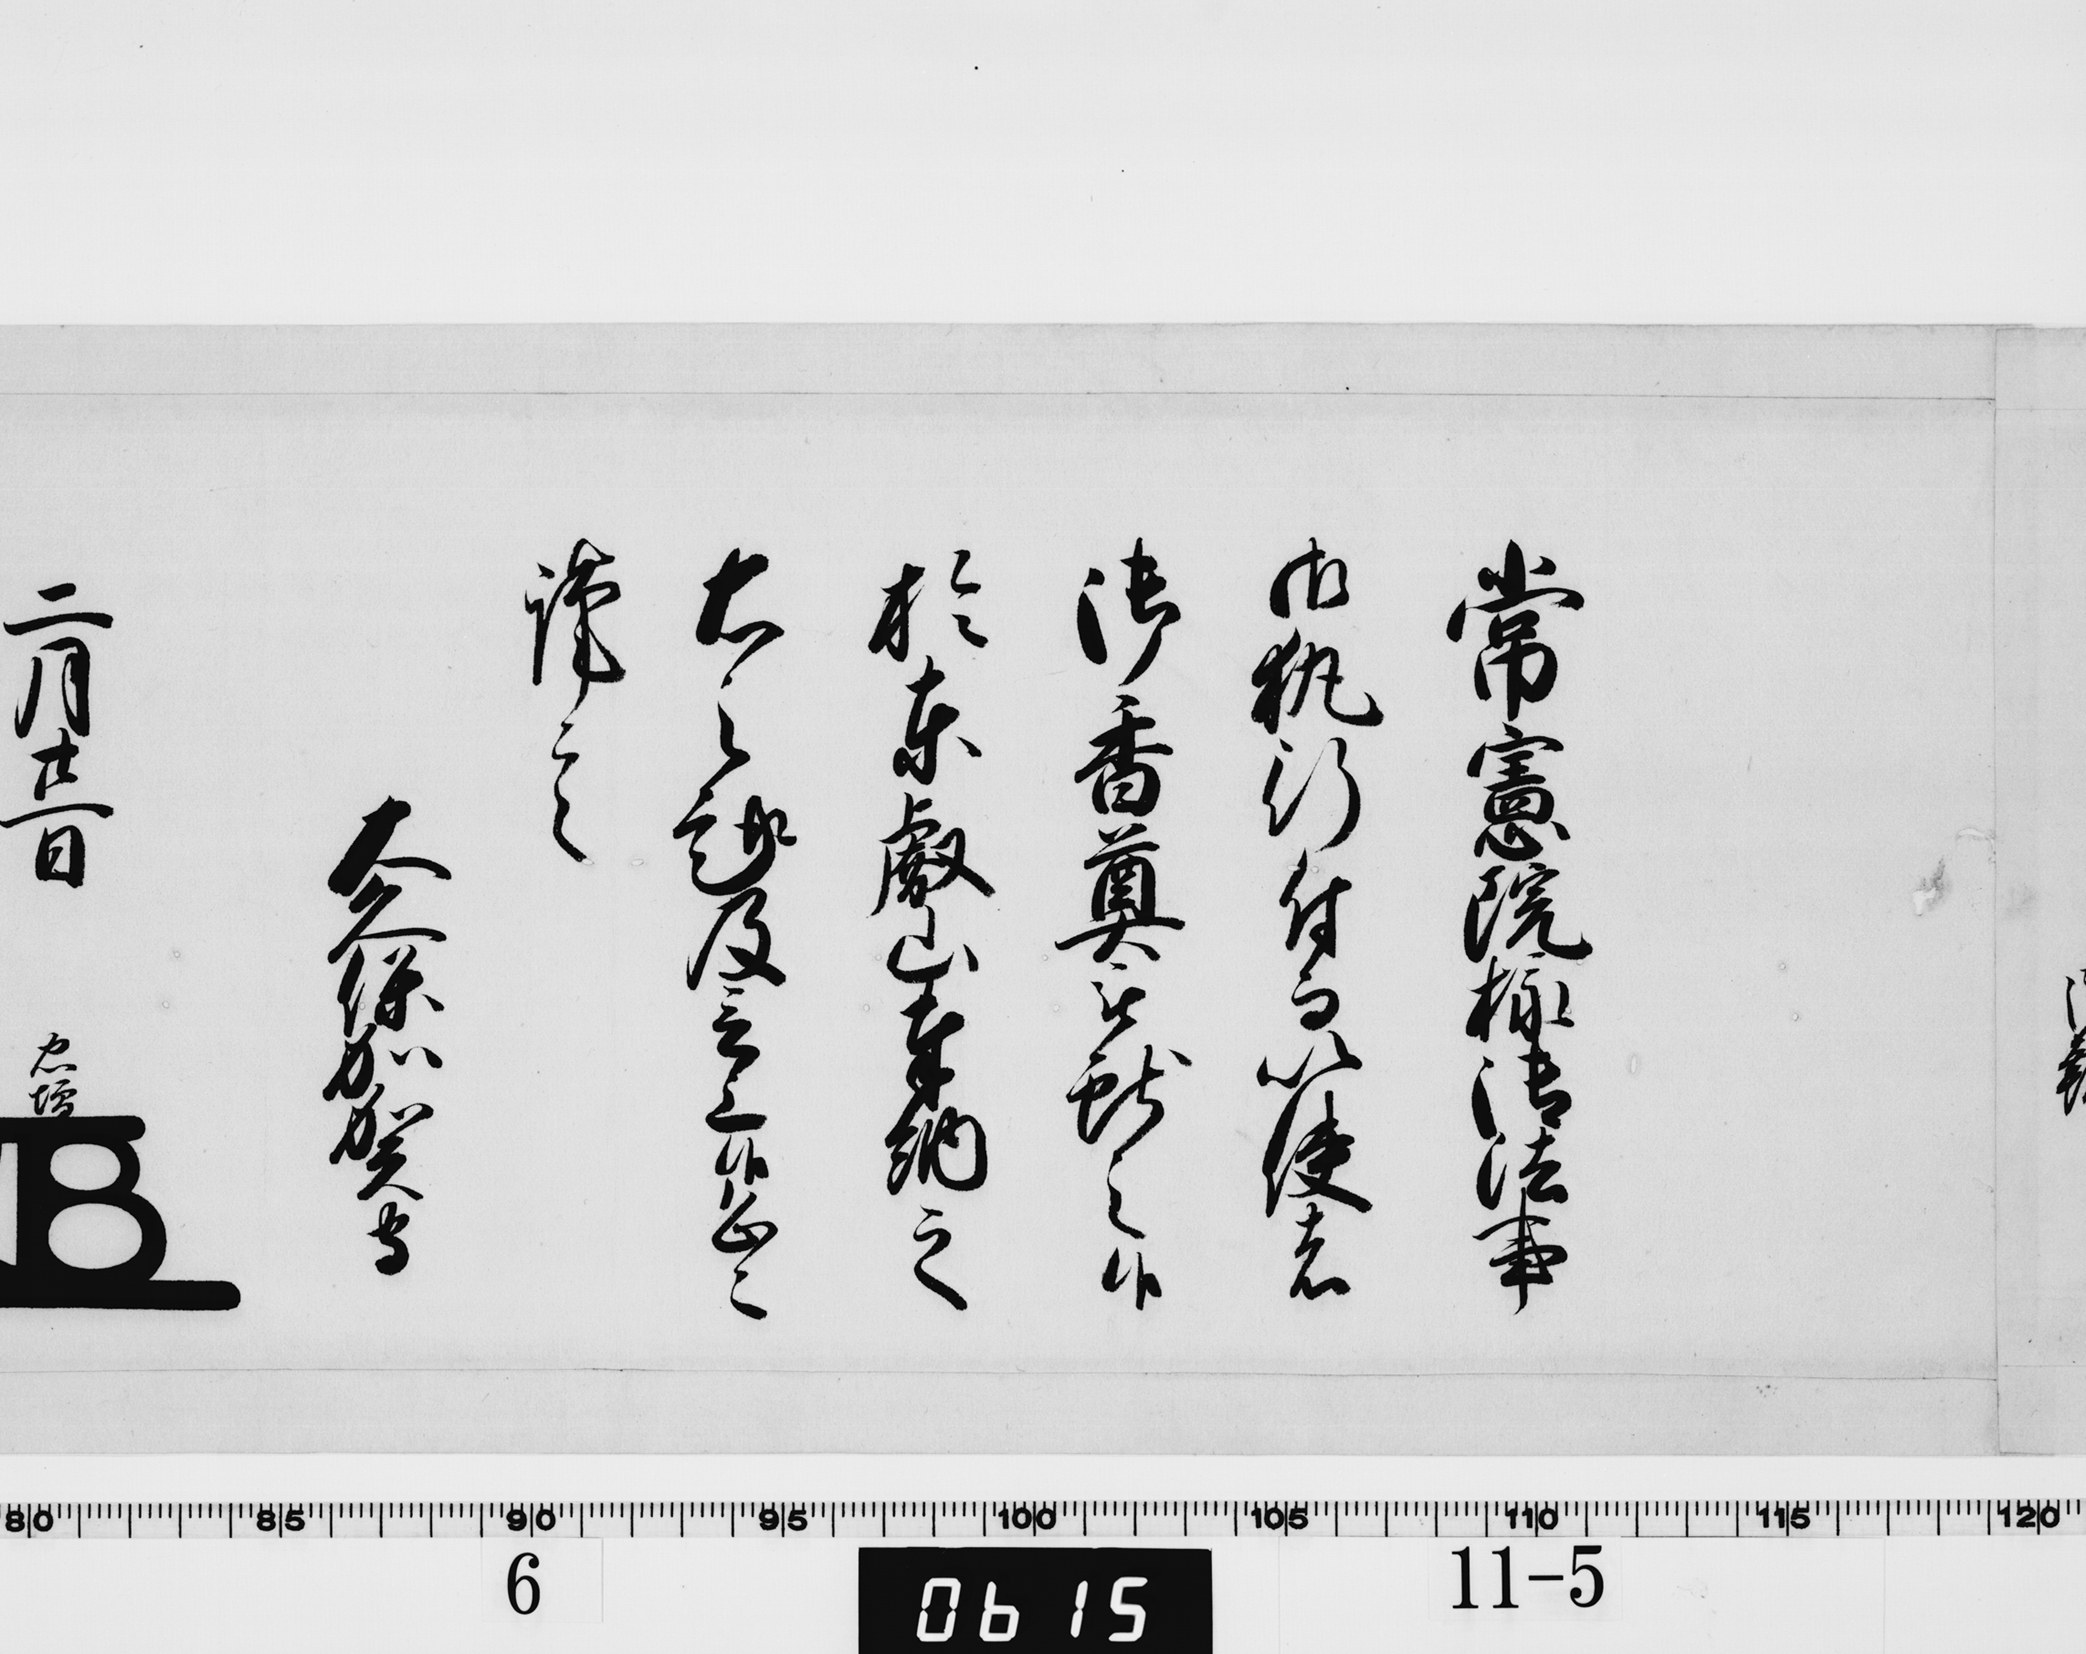 常憲院様御法事
御執行付而以使者
御香奠被献之候
於東叡山奉納之
右之趣及言上候処
謹言
大久保加賀守
二月廿二日
忠増
80 85 90 95 100 105 110 115 120
6
11-5
0615